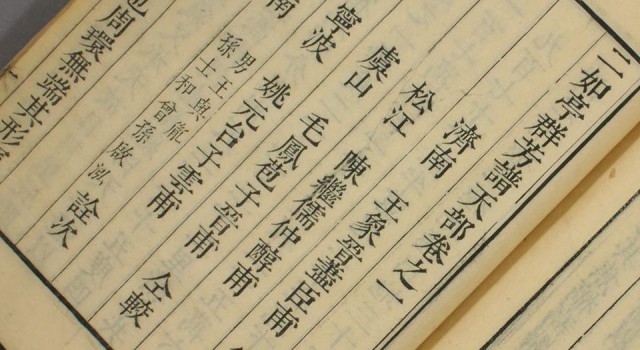 二如亭群芳譜天部卷之一
濟南 王象晉藎臣甫
松江 陳繼儒仲醇甫
虞山 毛鳳苞子晉甫 仝較
寧波 姚元台子雲甫
南
男王與胤
孫士和曾孫啟泓 詮次
也周環無端其形